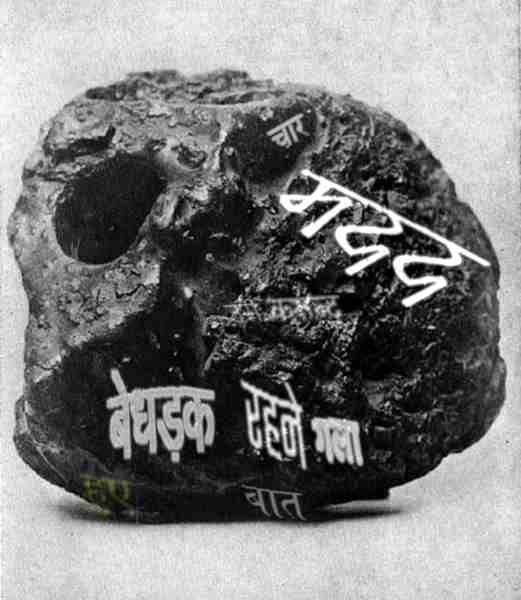 चार
मदद
बेधड़क रहने गला
हुए
बात